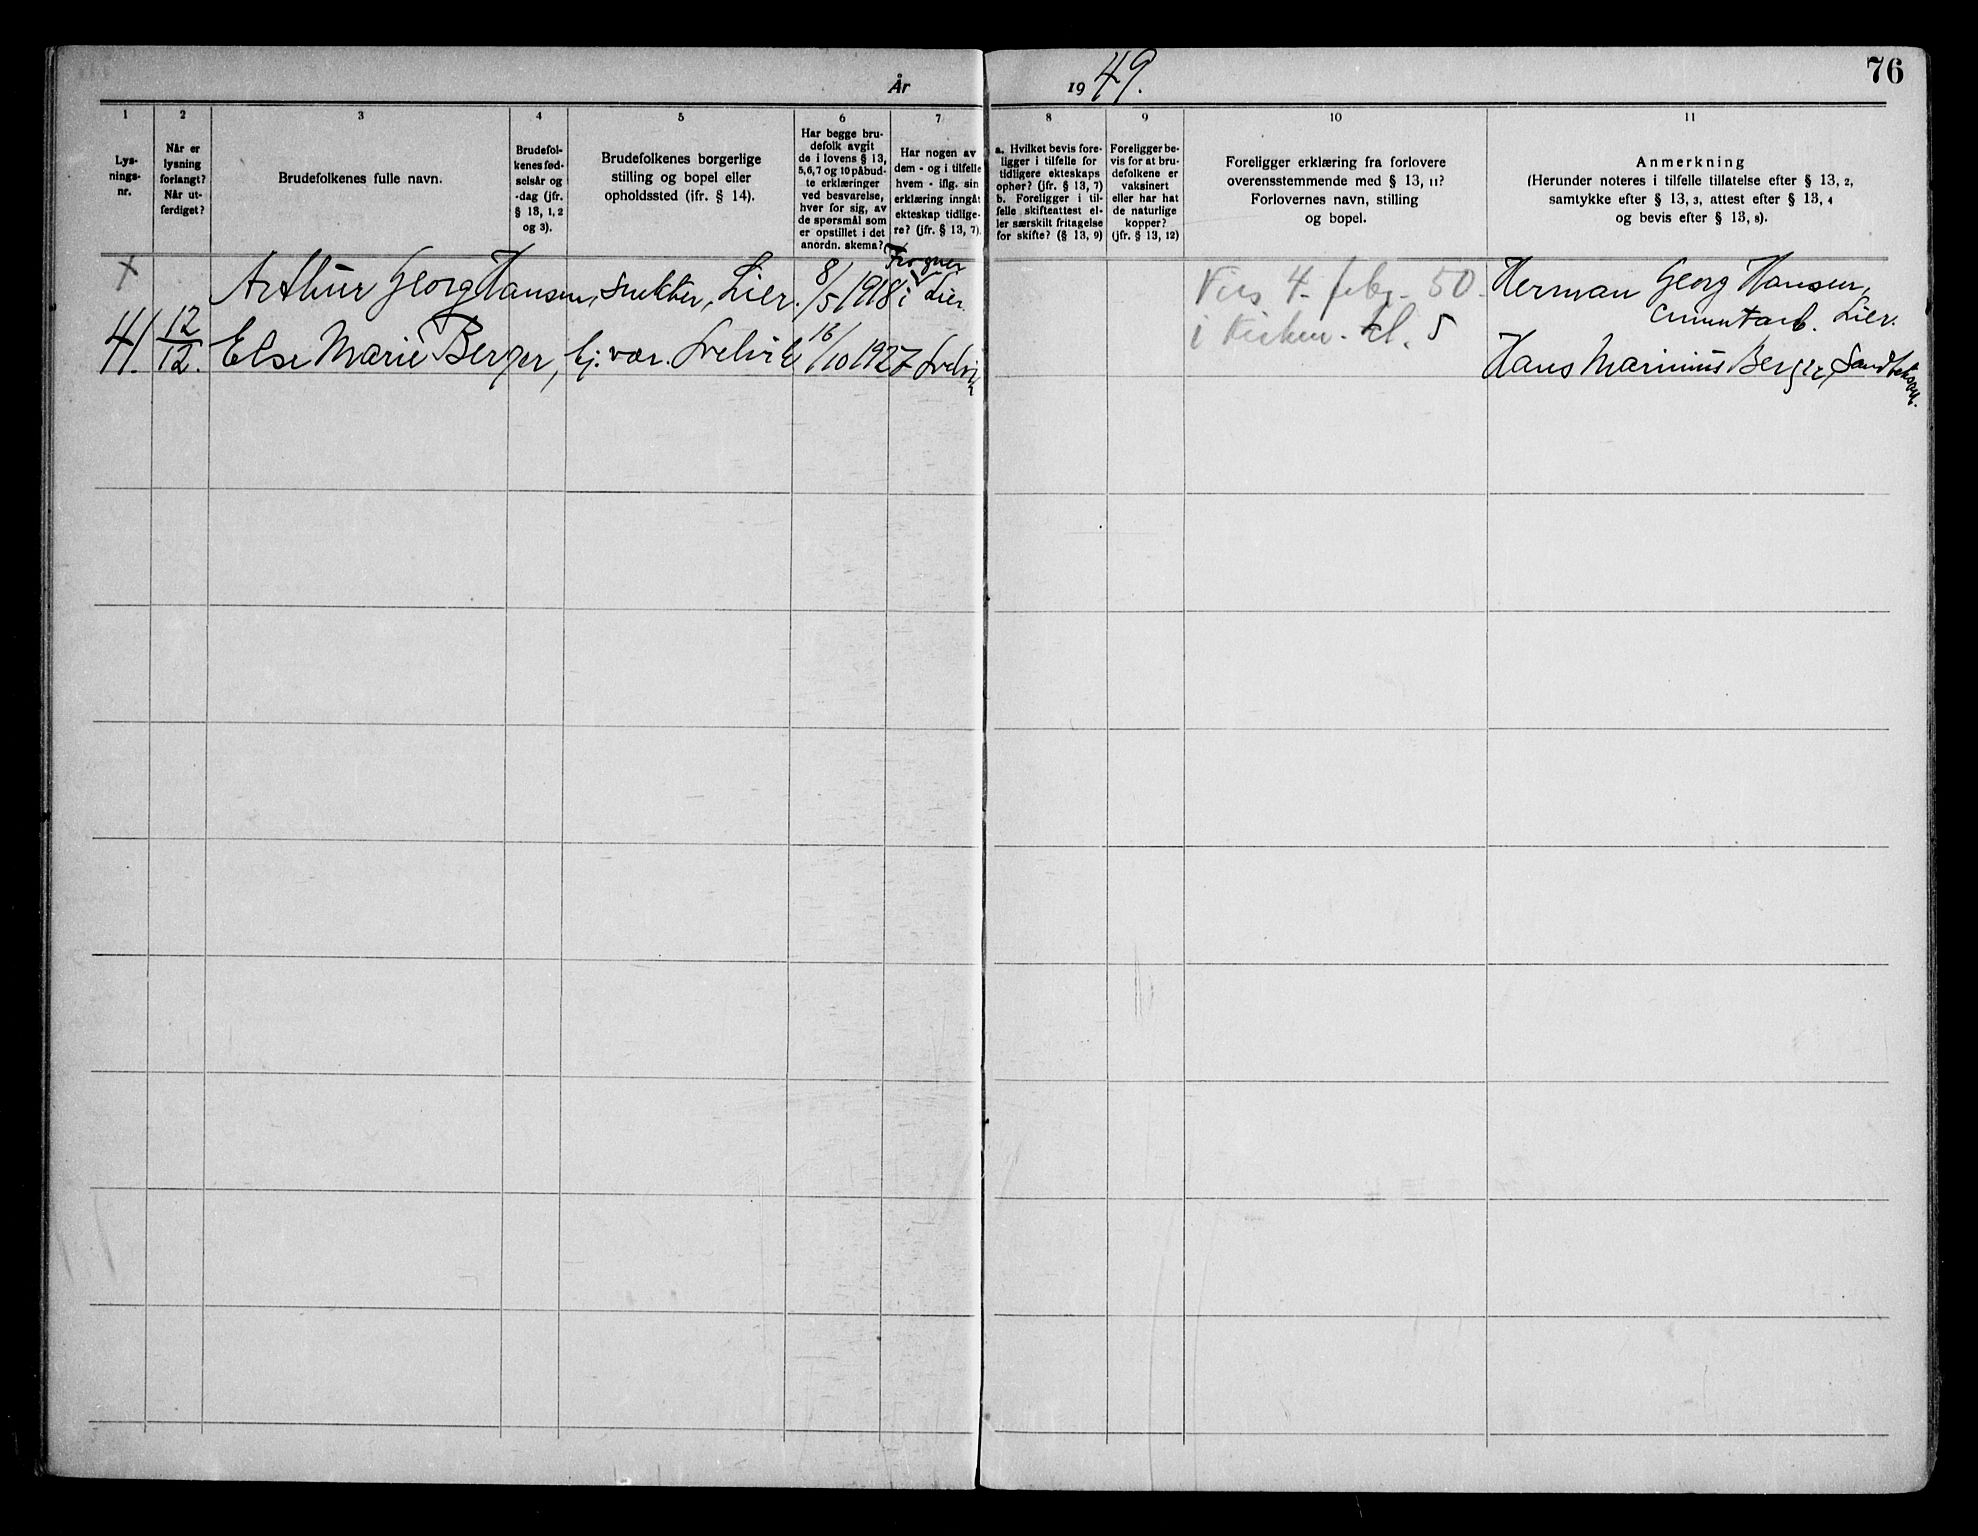 År 1949.
76
1 2 3 4 5 6 7 8 9 10 11
Lys-
nings-
nr.
Når er
lysning
forlangt?
Når ut-
ferdiget?
Brudefolkenes fulle navn.
Brudefol-
kenes fød-
selsår og
-dag (jfr.
§ 13, 1, 2
og 3).
Brudefolkenes borgerlige
stilling og bopel eller
opholdssted (ifr. § 14).
Har begge bru-
defolk avgit
de i lovens § 13,
5, 6, 7 og 10 påbud-
te erklæringer
ved besvarelse,
hver for sig, av
de spørsmål som
er opstillet i det
anordn. skema?
Har nogen av
dem - og i tilfelle
hvem - iflg. sin
erklæring inngåt
ekteskap tidlige-
re? (jfr. § 13, 7).
a. Hvilket bevis fore-
ligger i tilfelle for
tidligere ekteskaps
ophør? (jfr. § 13, 7)
b. Foreligger i til-
felle skifteattest el-
ler særskilt fritagelse
for skifte? (§ 13, 9)
Foreligger be-
vis for at bru-
defolkene er
vaksinert
eller har hat
de naturlige
kopper?
(jfr. § 13, 12)
Foreligger erklæring fra forlovere
overensstemmende med § 13, 11?
Forlovernes navn, stilling
og bopel.
Anmerkning
(Herunder noteres i tilfelle tillatelse efter § 13, 2,
samtykke efter § 13, 3, attest efter § 13, 4
og bevis efter § 13, 8).
x
41. 12/12.
Arthur Georg Hansen, snekker, Lier. 8/5 1918 Frogner i Lier.
Else Marie Berger, hj. vær. Svelvik 16/10 1927 Svelvik
Vies 4. febr. 50.
i kirken. kl. 5
Herman Georg Hansen,
cementarb. Lier.
Hans Marinius Berger, Sandtekarl.